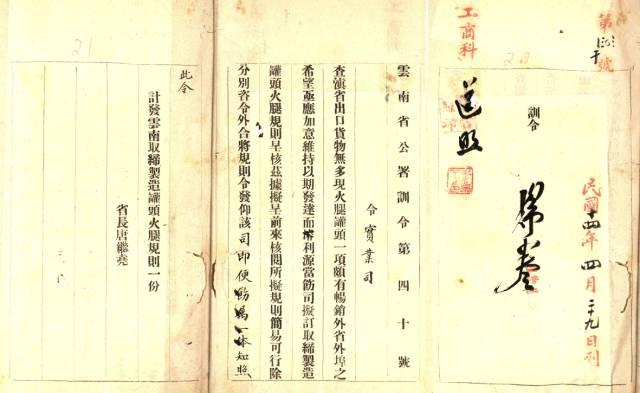 第
號
工商科
訓令
遵照
歸卷
民國十四年四月二十九日到
雲南省公署訓令第四十號
令實業司
查滇省出口貨物無多現火腿罐頭一項頗有暢銷外省外埠之
希望亟應加意維持以期發達而利源當飭司擬訂取締製造
罐頭火腿規則呈核茲據擬呈前來核閱所擬規則簡易可行除
分別咨令外合將規則令發仰該司即便飭屬一体知照
此令
計發雲南取締製造罐頭火腿規則一份
省長唐繼堯
21